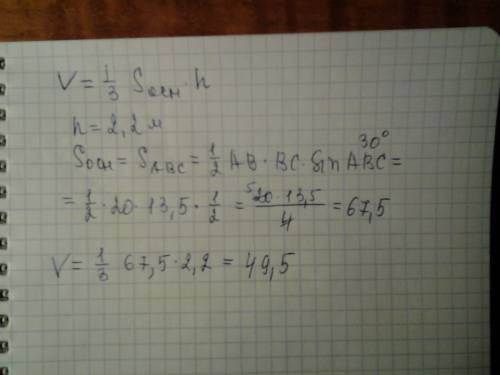 V = 1/3 Sосн · h
h = 2,2 м
Sосн = SABC = 1/2 AB · BC · Sin ABC =
30°
= 1/2 · 20 · 13,5 · 1/2 = 20 · 13,5 / 4 = 67,5
5
V = 1/3 67,5 · 2,2 = 49,5